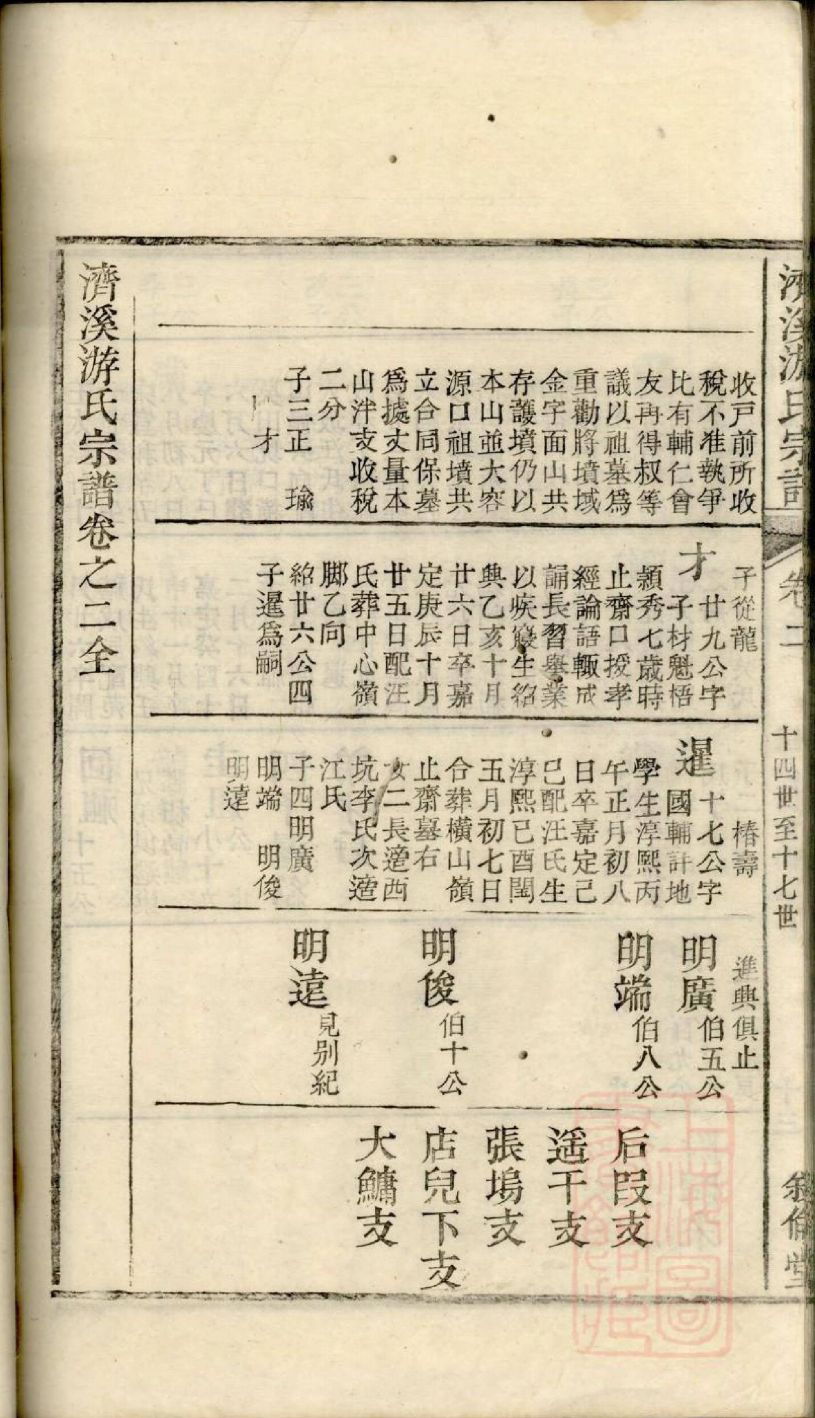 濟溪游氏宗譜
卷二
十四世至十七世
叙倫堂
收戸前所收
稅不准執爭
比有輔仁會
友再得叔等
議以祖墓爲
重勸將墳域
金字面山共
存護墳仍以
本山並大容
源口祖墳共
立合同保墓
爲據丈量本
山泮支收稅
二分
子三正　瑜
才
子從龍
才
廿九公字
子材魁梧
穎秀七歲時
止齋口授孝
經論語輙成
誦長習舉業
以疾癈生紹
興乙亥十月
廿六日卒嘉
定庚辰十月
廿五日配汪
氏葬中心嶺
脚乙向
紹廿六公四
子暹爲嗣
椿壽
暹
十七公字
國輔計地
學生淳熙丙
午正月初八
日卒嘉定己
巳配汪氏生
淳熙己酉閏
五月初七日
合葬橫山嶺
止齋墓右
女二長適西
坑李氏次適
江氏
子四明廣
明端　明俊
明遠
進興俱止
明廣伯五公
明端伯八公
明俊伯十公
明遠見别紀
后段支
遥干支
張塢支
店兒下支
大鱅支
濟溪游氏宗譜卷之二全